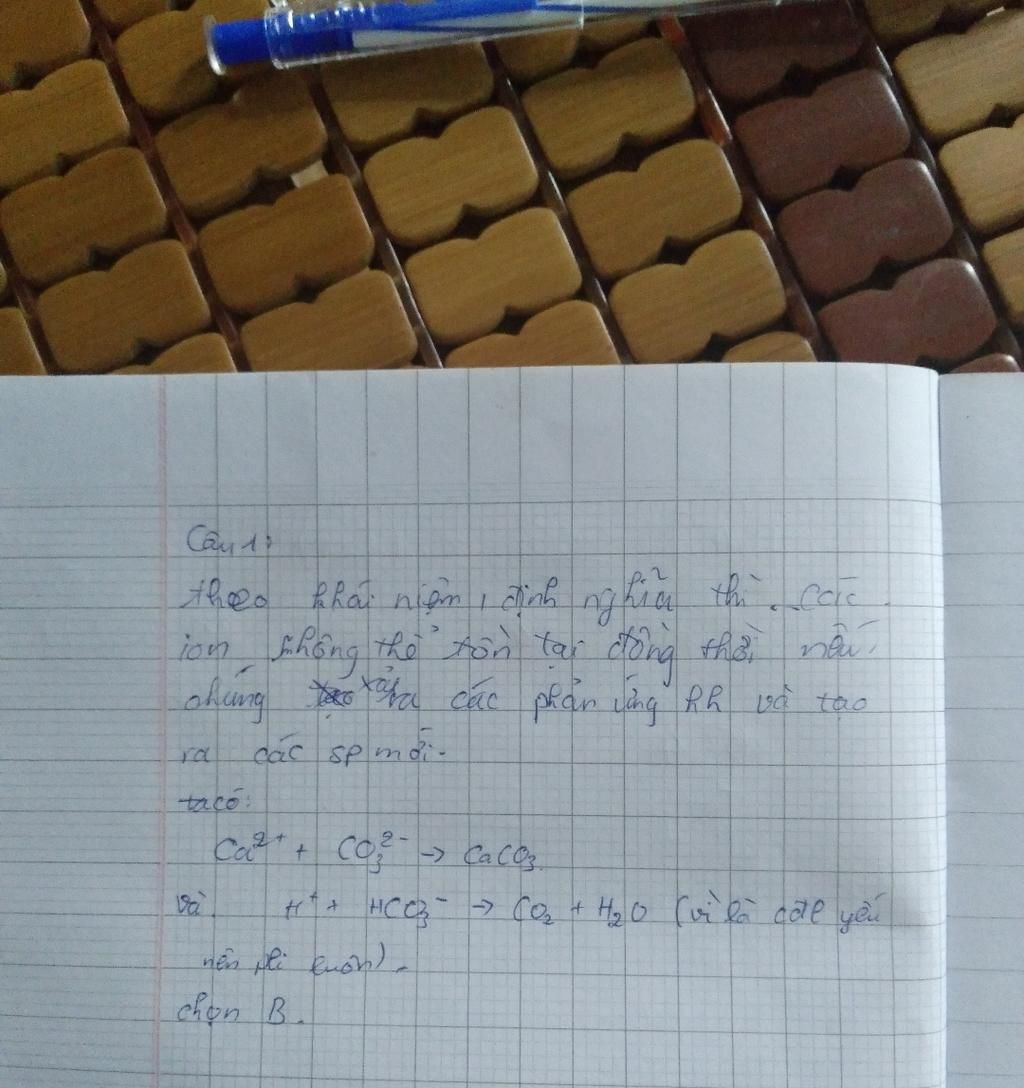 Câu 1:
theo khái niệm, định nghĩa thì các
ion không thể tồn tại đồng thời nếu
chúng xảy ra các phản ứng hh và tạo
ra các sp mới.
ta có:
Ca²⁺ + CO₃²⁻ → CaCO₃.
và H⁺ + HCO₃⁻ → CO₂ + H₂O (vì là yếu
nên)
chọn B.